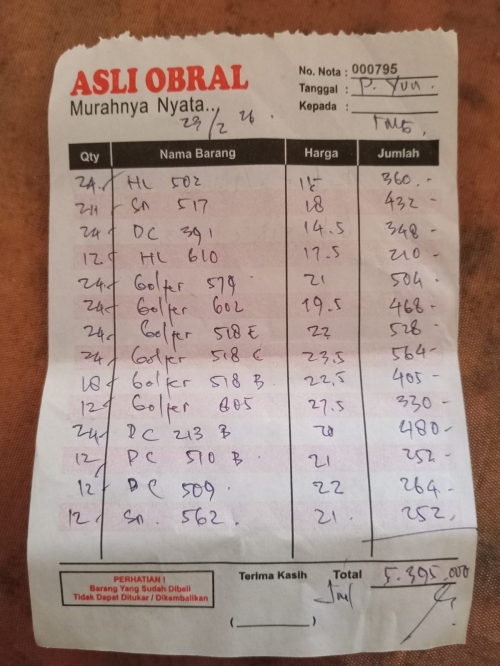 ASLI OBRAL
Murahnya Nyata...
23/2 26.
No. Nota : 000795
Tanggal : P. Yun
Kepada :
Qty Nama Barang Harga Jumlah
24 HL 502 15 360.-
24 Sn 517 18 432-
24 DC 391 14.5 348-
12 HL 610 17.5 210-
24 Golfer 579 21 504-
24 Golfer 602 19.5 468-
24 Golfer 518 E 22 528-
24 Golfer 518 C 23.5 564-
18 Golfer 518 B 22.5 405-
12 Golfer 605 27.5 330-
24 DC 213 B 20 480-
12 DC 510 B 21 252-
12 DC 509. 22 264-
12 Sn. 562. 21. 252.
PERHATIAN !
Barang Yang Sudah Dibeli
Tidak Dapat Ditukar / Dikembalikan
Terima Kasih
Total 5.395.000